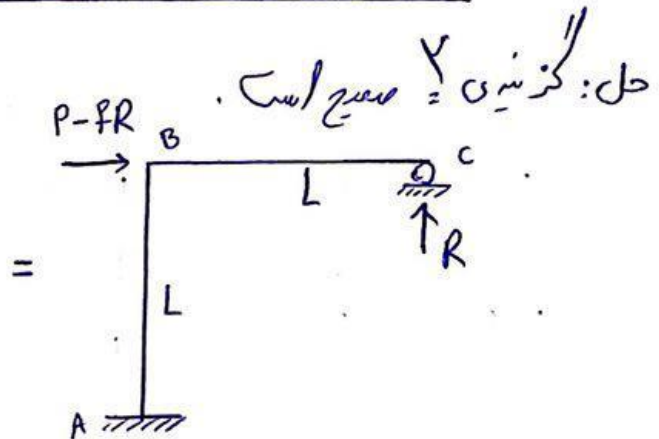 حل: گزینه‌ی ۲ صحیح است.
P-fR
B
C
L
R
=
L
A